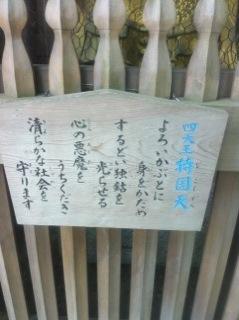 四天王 持国天
よろいかぶとに
身をかため
するどい独鈷を
光らせる
心の悪魔を
うちくだき
清らかな社会を
守ります